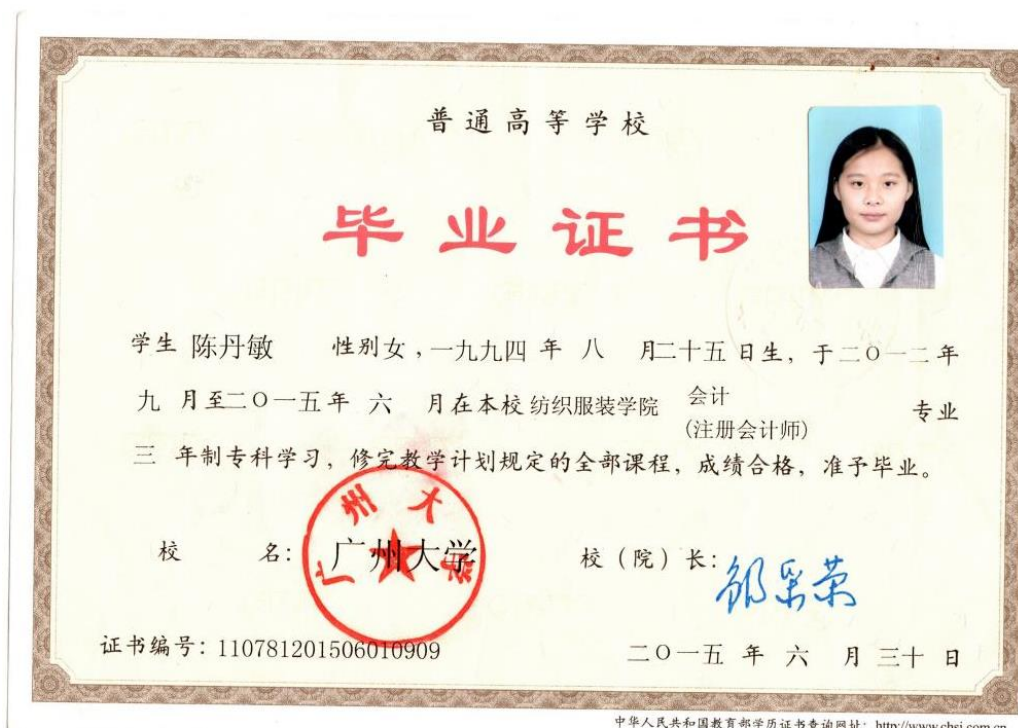 普通高等学校
毕业证书
学生 陈丹敏 性别女,一九九四 年 八 月二十五日生,于二〇一二年
九 月至二〇一五年 六 月在本校 纺织服装学院 会计 (注册会计师) 专业
三 年制专科学习,修完教学计划规定的全部课程,成绩合格,准予毕业。
校 名: 广州大学 校(院)长:
广州大学
证书编号:110781201506010909 二〇一五 年 六 月 三十 日
中华人民共和国教育部学历证书查询网址:http://www.chsi.com.cn